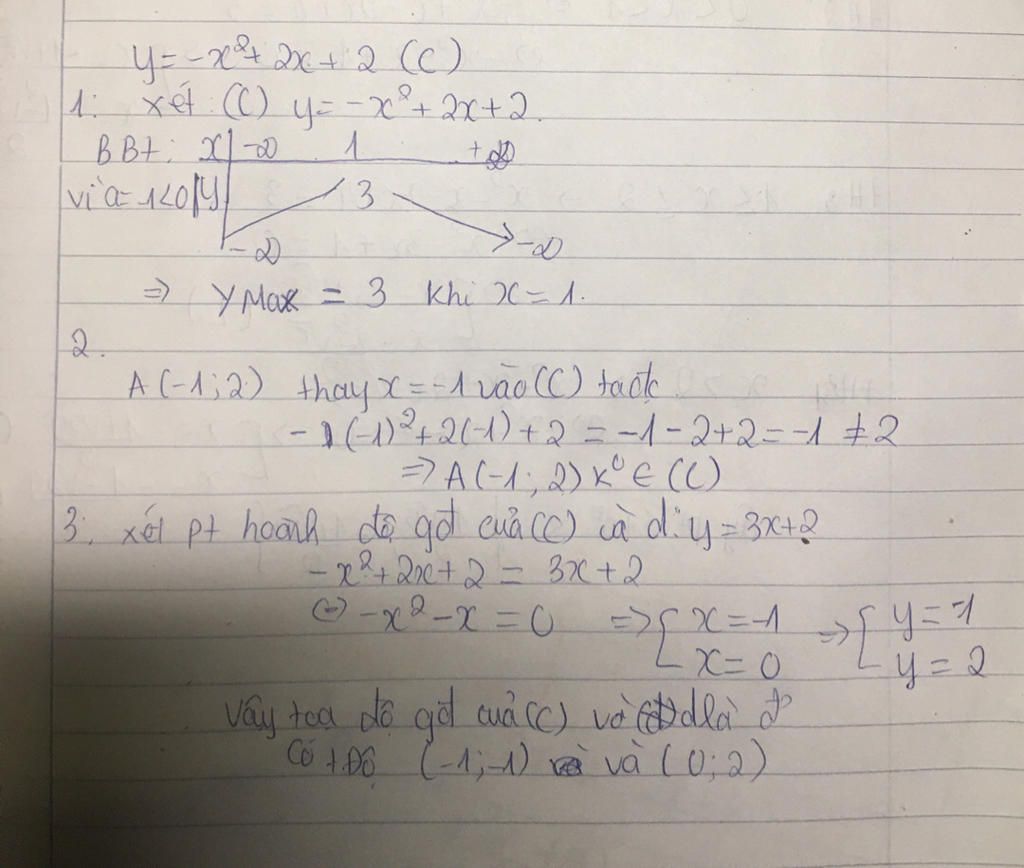 y = -x² + 2x + 2 (C)
1: xét (C) y = -x² + 2x + 2.
BBt: x -∞ 1 +∞
vì a = -1<0 y 3
-∞ -∞
⇒ y Max = 3 khi x = 1.
2.
A(-1; 2) thay x = -1 vào (C) ta đc
-1(-1)² + 2(-1) + 2 = -1 - 2 + 2 = -1 ≠ 2
⇒ A(-1; 2) k⁰ ∈ (C)
3: xét pt hoành độ gđ của (C) và d: y = 3x+2
-x² + 2x + 2 = 3x + 2
⇔ -x² - x = 0 ⇒ [ x = -1 ⇒ [ y = -1
x = 0 y = 2
Vậy tọa độ gđ của (C) và d là đ
Có t.Độ (-1; -1) và (0; 2)